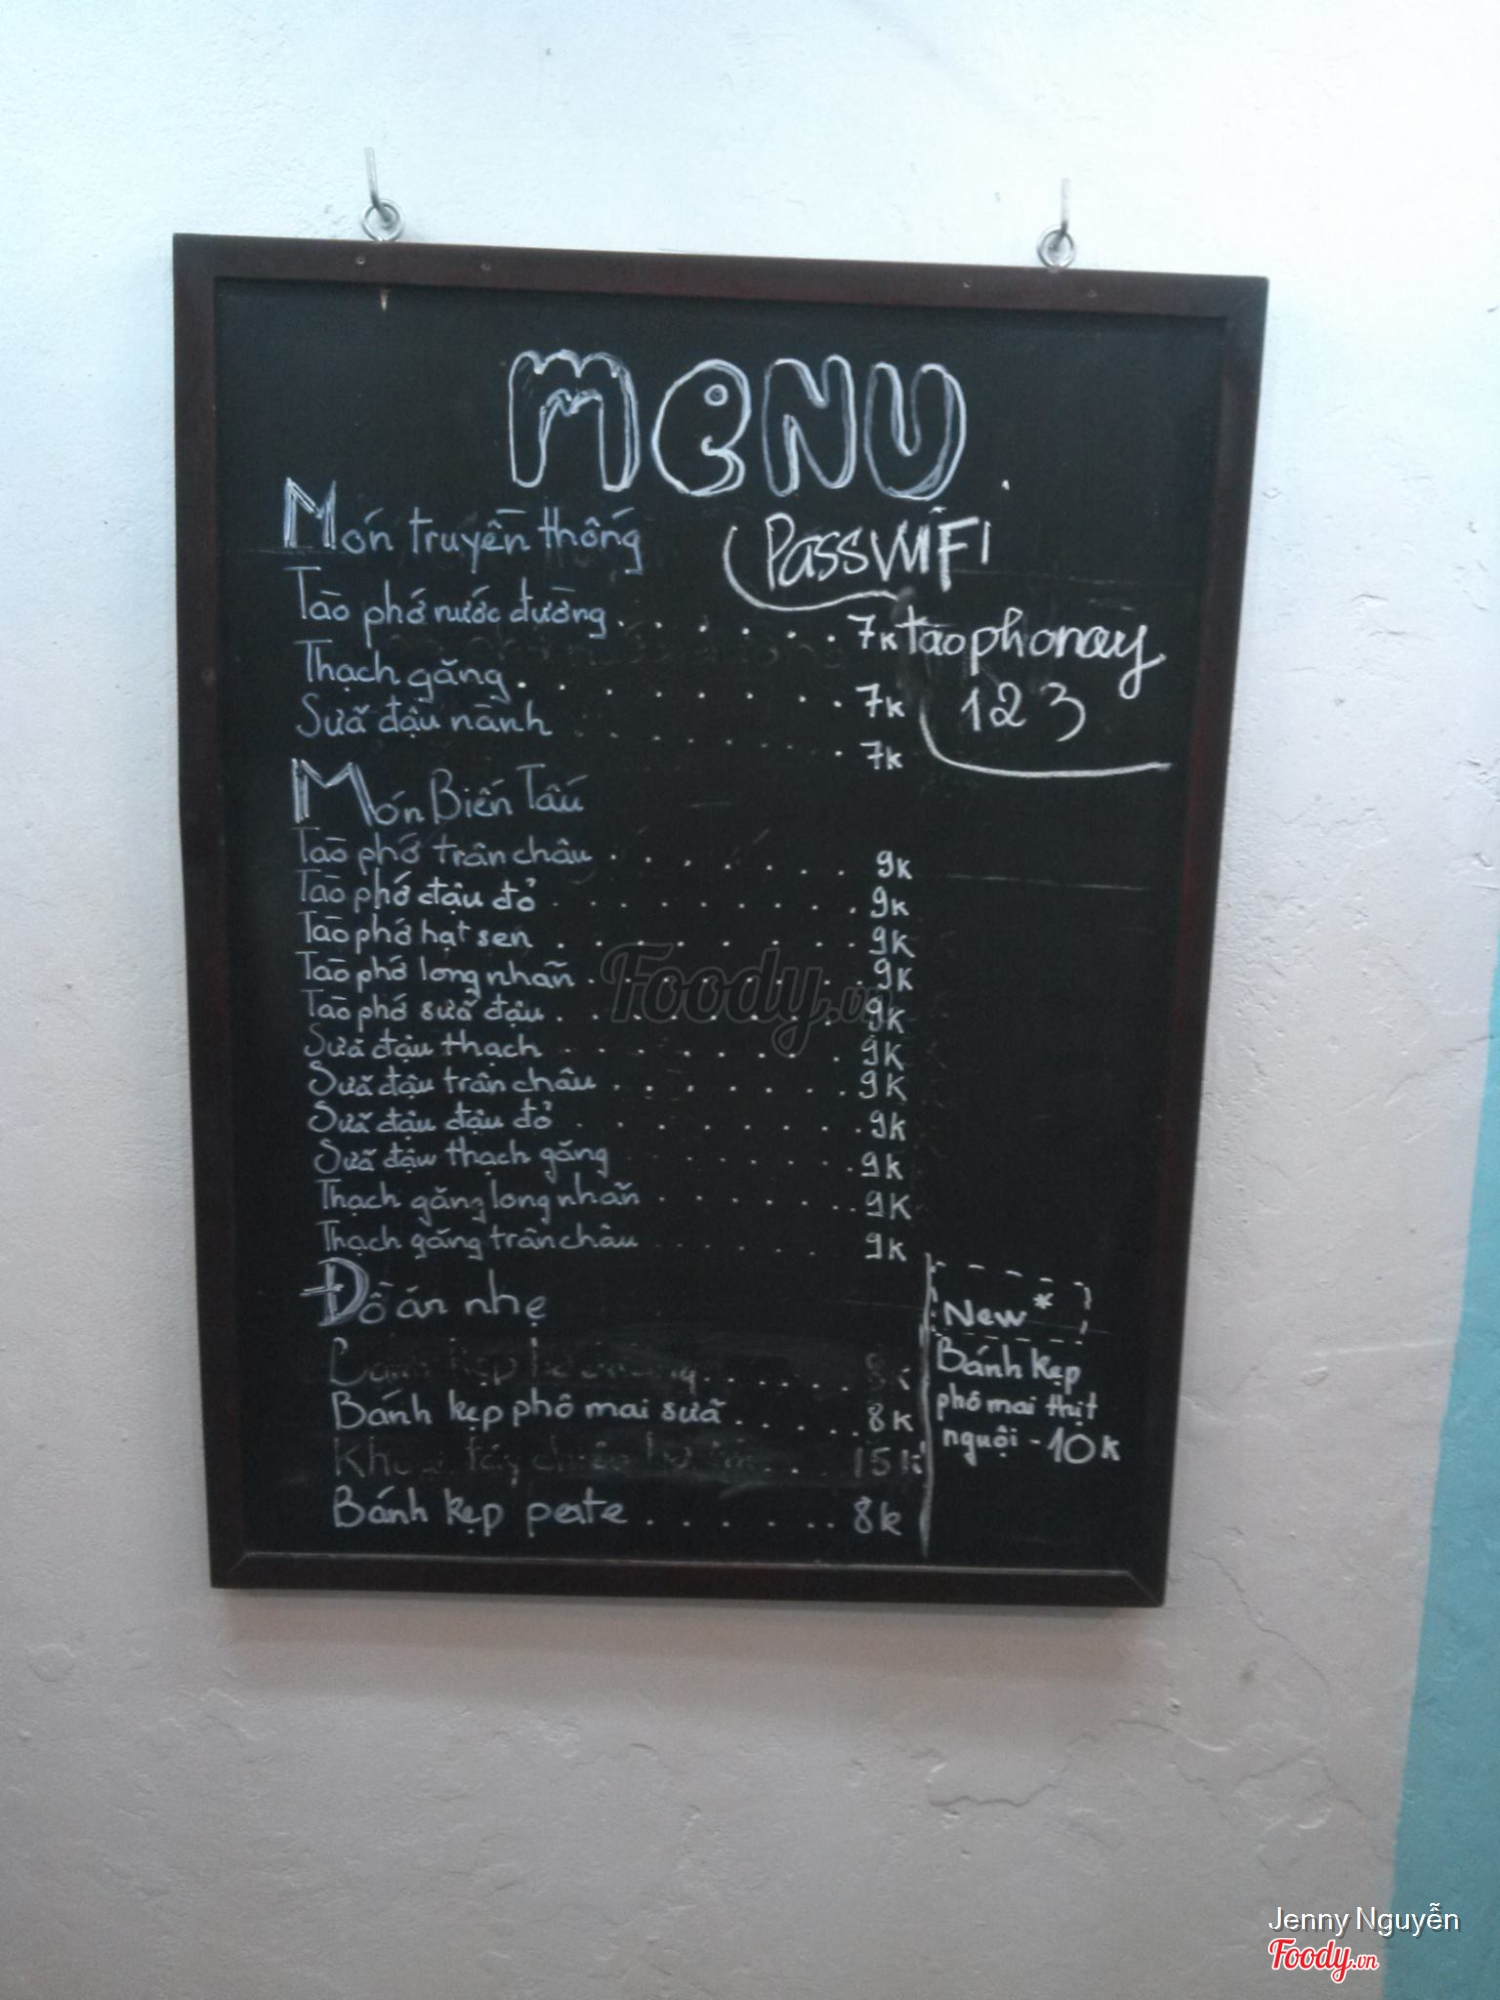 MENU
Món truyền thống
Pass WIFI
Tào phớ nước đường . . . . . . 7k
taophonay
123
Thạch găng . . . . . . . . 7k
Sữa đậu nành . . . . . . . 7k
Món Biến Tấu
Tào phớ trân châu . . . . . . . 9k
Tào phớ đậu đỏ . . . . . . . . . 9k
Tào phớ hạt sen . . . . . . . . 9k
Tào phớ long nhãn . . . . . . . 9k
Tào phớ sữa đậu . . . . . . . . 9k
Sữa đậu thạch . . . . . . . . 9k
Sữa đậu trân châu . . . . . . . 9k
Sữa đậu đậu đỏ . . . . . . . . 9k
Sữa đậu thạch găng . . . . . . . 9k
Thạch găng long nhãn . . . . . . . 9k
Thạch găng trân châu . . . . . . 9k
Đồ ăn nhẹ
Bánh kẹp phô mai sữa . . . . . 8k
15k
Bánh kẹp pate . . . . . . . 8k
New *
Bánh kẹp
phô mai thịt
nguội - 10k
Foody.vn
Jenny Nguyễn
Foody.vn